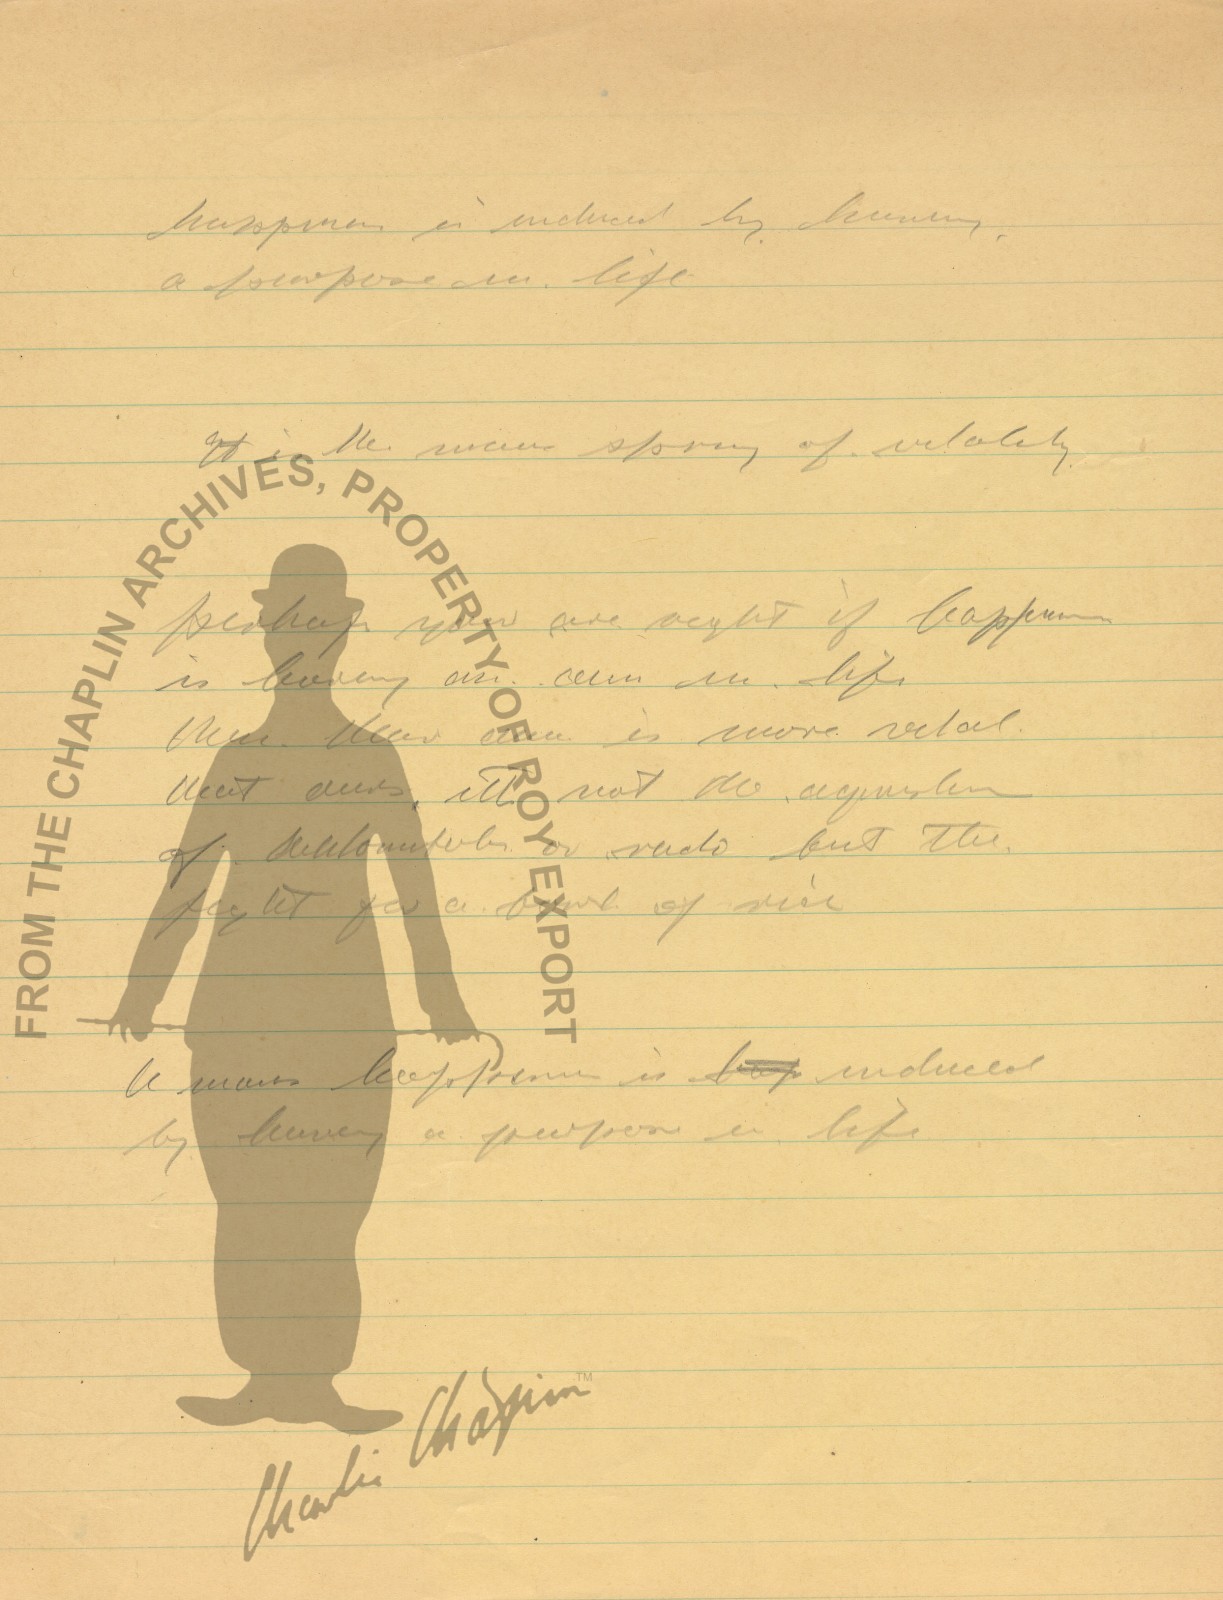 happiness is induced by having
a purpose in life
It is the main spring of vitality
perhaps your are right if happiness
is having an aim in life
then their aim is more vital
that ours, it not the acquisition
of or radio but the
fight for a bowl of rice
mans happiness is induced
by having a purpose in life
FROM THE CHAPLIN ARCHIVES, PROPERTY OF ROY EXPORT
Charlie Chaplin™